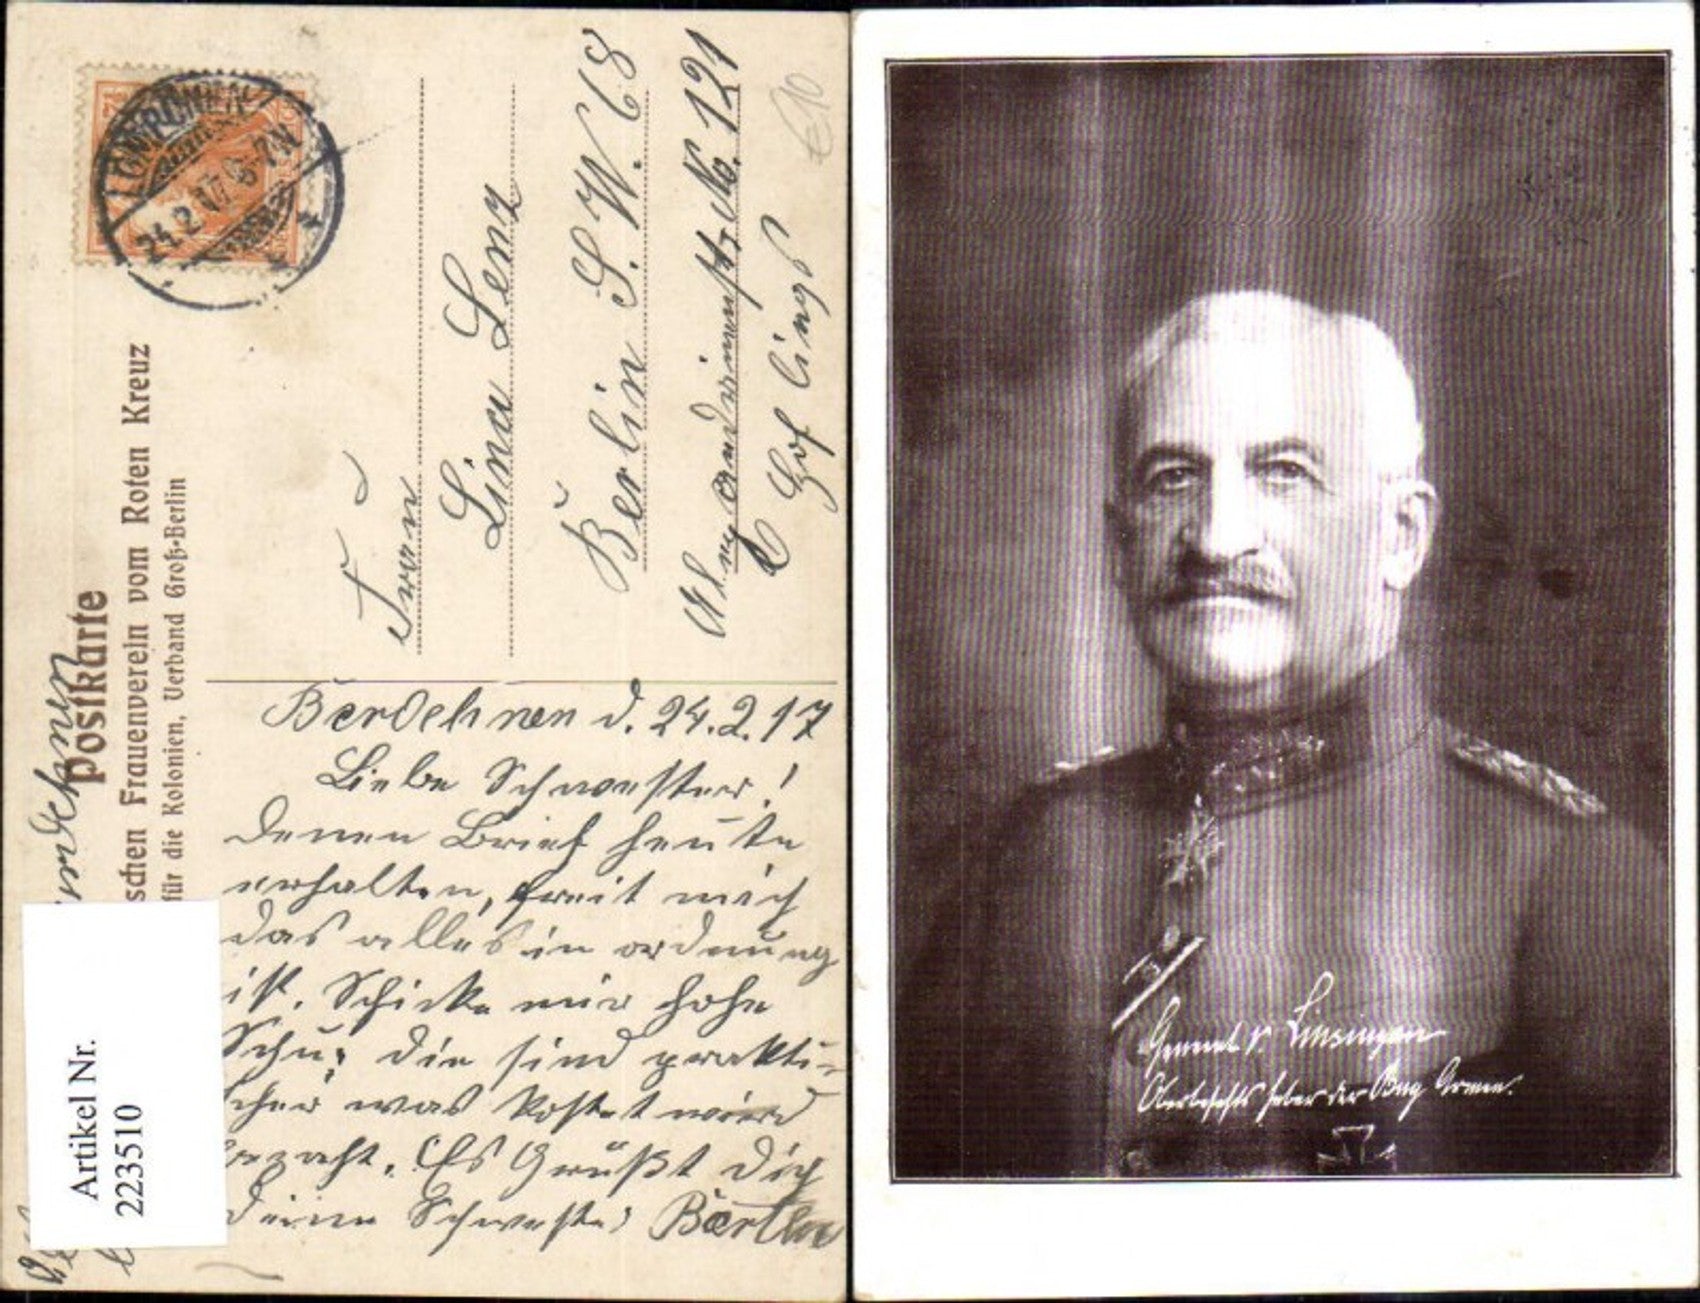 Postkarte
schen Frauenverein vom Roten Kreuz
für die Kolonien, Verband Groß-Berlin
24.2.17
7½
Frau
Lina Lenz
Berlin S.W. 68
Alexandrinenstr. No. 121
Hof links
€10
d. 24.2.17
Liebe Schwester!
Deinen Brief heute
erhalten, freit mich
das alles in ordnung
ist. Schicke mir hohe
Schu, die sind prakti-
scher was kostet wird
bezahlt. Es Grüßt Dich
deine Schwester Bertha
Artikel Nr.
223510
General v. Linsingen
Oberbefehlshaber der Bug Armee.